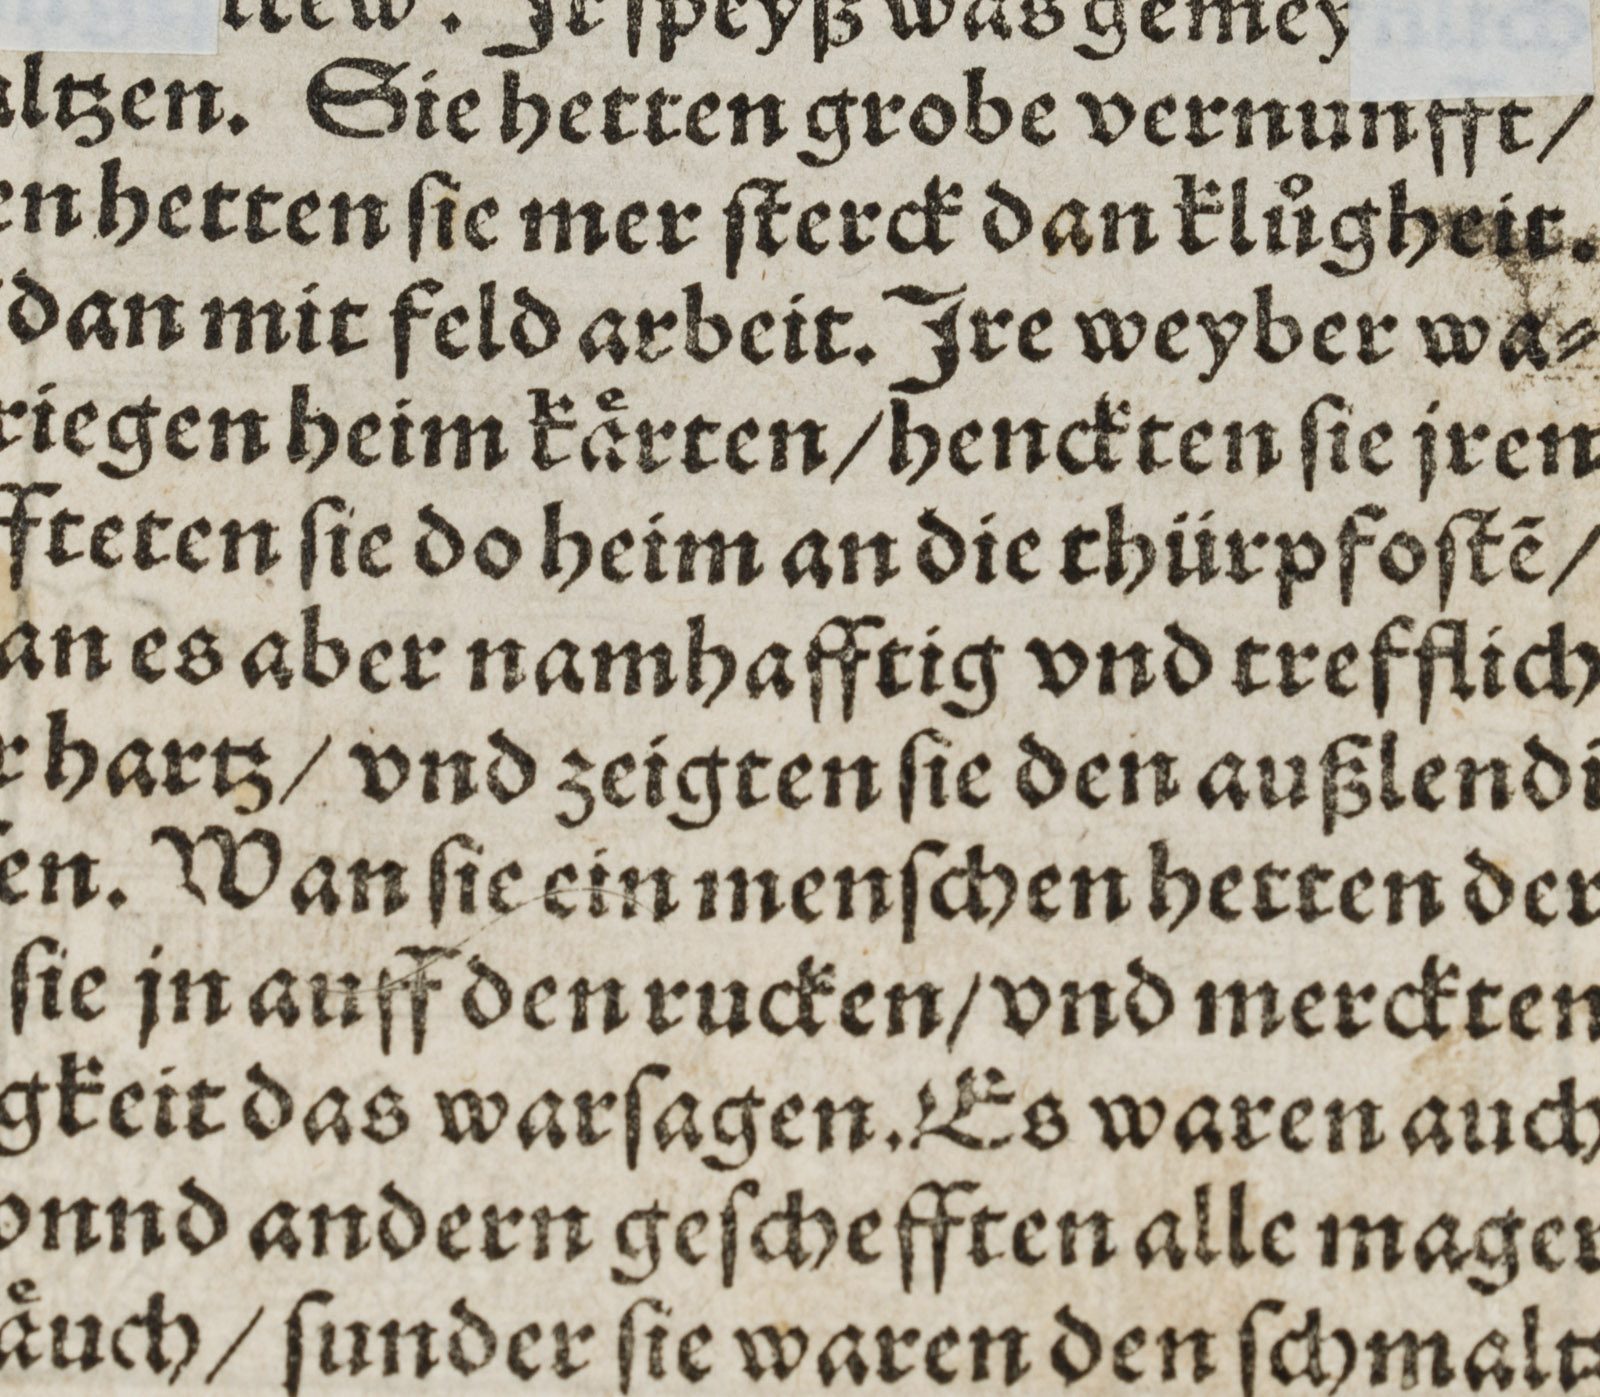 ttew. Jr speyß was gemey
altzen. Sie hetten grobe vernunfft/
en hetten sie mer sterck dan klůgheit.
dan mit feld arbeit. Jre weyber wa⸗
riegen heim kaͤrten/henckten sie jren
ffteten sie do heim an die thürpfostē/
an es aber namhafftig vnd trefflich
r hartz/ vnd zeigten sie den außlendi
en. Wan sie ein menschen hetten der
sie jn auff den rucken/vnd merckten
gkeit das warsagen. Es waren auch
onnd andern geschefften alle mager
aͤuch/ sunder sie waren den schmaltz